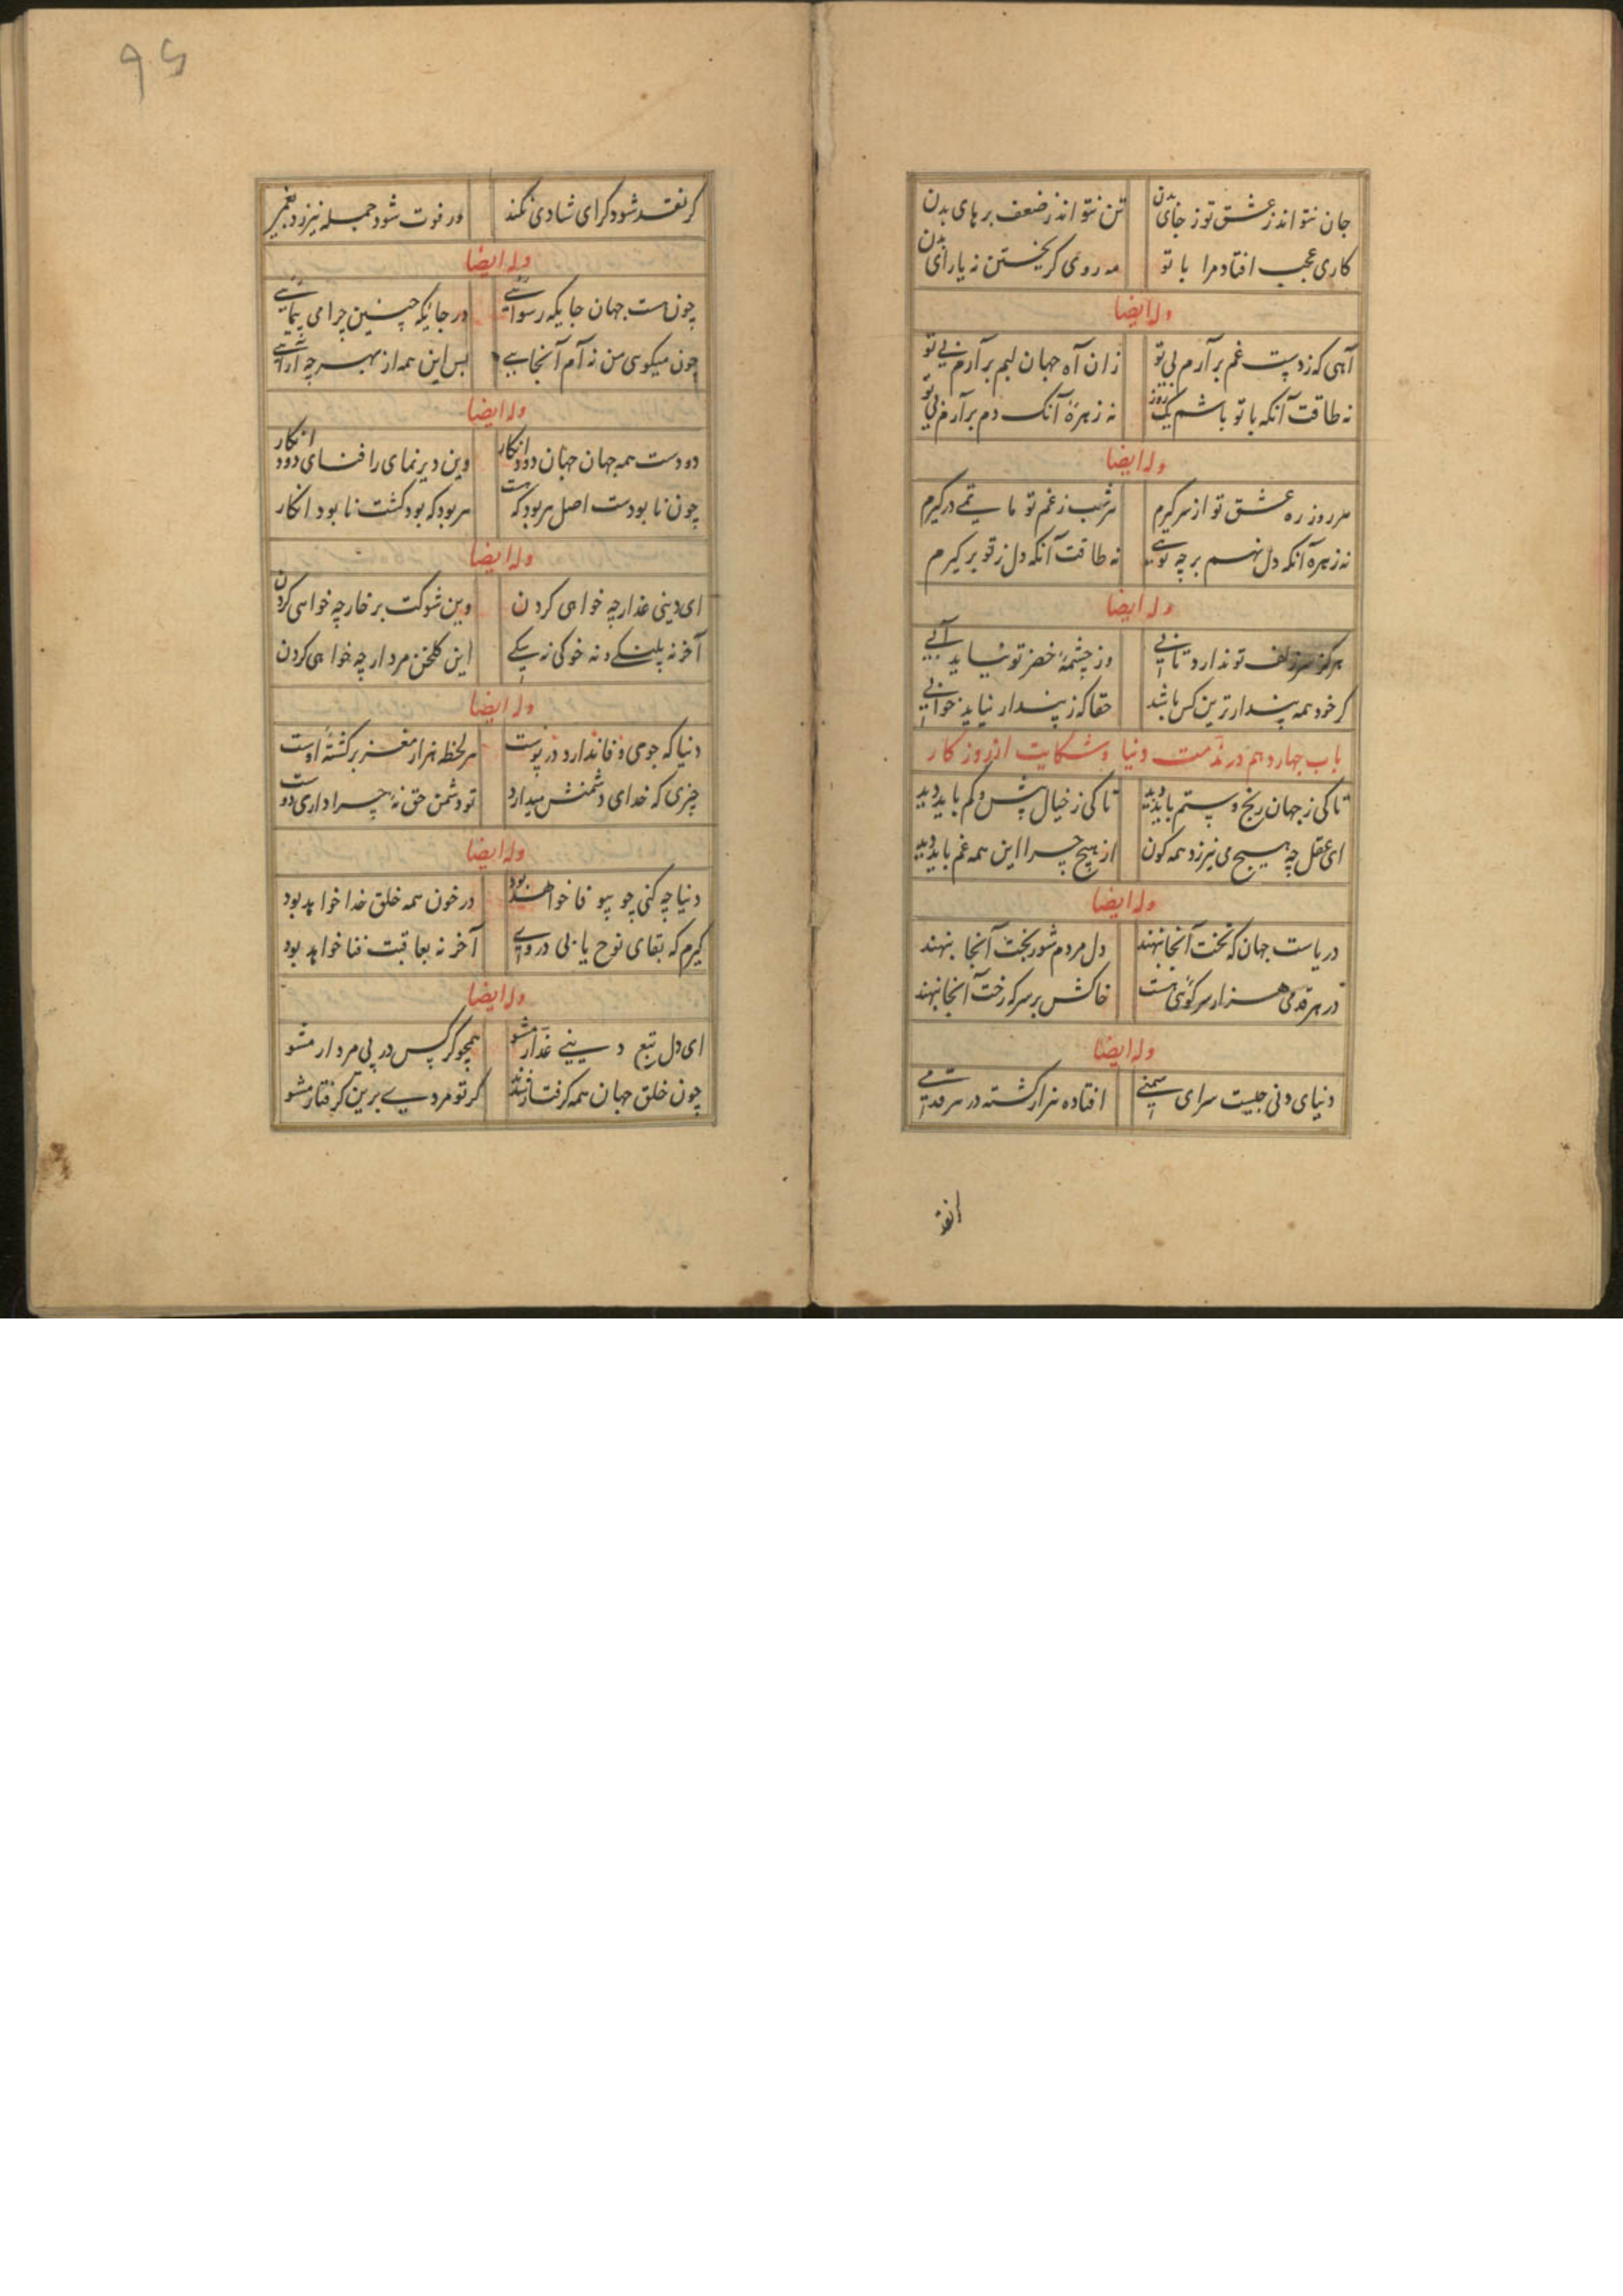 جان نتواند ز عشق تو ز جای بدن تن نتواند ز ضعف بر های بدن
کاری عجب افتاد مرا با تو نه روی کریختن نه یارای بدن
وله ایضا
آهی که ز دست غم برآرم بی تو زان آه جهان بهم برآرم بی تو
نه طاقت آنکه با تو باشم یک روز نه زهرهٔ آنک دم برآرم بی تو
وله ایضا
هر روز ره عشق تو از سر کیرم هر شب ز غم تو ماتمی در کیرم
نه زهره آنکه دل نهم بر چه توئی نه طاقت آنکه دل ز تو بر کیرم
وله ایضا
هرکز سر زلف تو ندارد تابی وز چشمهٔ خضر تو نیاید آبی
کر خود همه پندارترین کس باشد حقا که ز پندار نیاید خوابی
باب چهاردهم در مذمت دنیا و شکایت از روز کار
تا کی ز جهان رنج و ستم باید دید تا کی ز خیال بیش و کم باید دید
ای عقل چه هیچ می نیرزد همه کون از هیچ چرا این همه غم باید دید
وله ایضا
دریاست جهان که تخت آنجا نهند دل مردم شوربخت آنجا بنهند
در هر قدمی هزار سرکوئی هست خاکش بر سر که رخت آنجا نهند
وله ایضا
دنیای دنی چیست سرای ستمی افتاده هزار کشته در هر قدمی
انقد
۹۶
کر نقد شود کرای شادی نکند ور فوت شود جمله نیرزد بغمی
وله ایضا
چون هست جهان جایکه رسوائی در جایکه چنین چرا می پائی
چون میکوئی من نه آم آنجایی پس این همه از بهر چه آرائی
وله ایضا
دودست همه جهان جهان دود انکار وین دیرنمای را فنای دود انکار
چون نابودست اصل هر بود که هست هر بود که بود کشت نابود انکار
وله ایضا
ای دینی غدار چه خواهی کردن وین شوکت بر خار چه خواهی کردن
آخر نه پلنکی و نه خوکی نه سکی این کلخن مردار چه خواهی کردن
وله ایضا
دنیا که جوی وفا ندارد در پوست هر لحظه هزار مغز سرکشتهٔ اوست
چیزی که خدای دشمنش میدارد تو دشمن حق نهٔ چرا داری دوست
وله ایضا
دنیا چه کنی چو بیوفا خواهد بود در خون همه خلق خدا خواهد بود
کیرم که بقای نوح یابی در وی آخر نه بعاقبت فنا خواهد بود
وله ایضا
ای دل تبع دینی غدار مشو همچو کرکس در پی مردار مشو
چون خلق جهان همه کرفتار شدند کر تو مردی برین کرفتار مشو